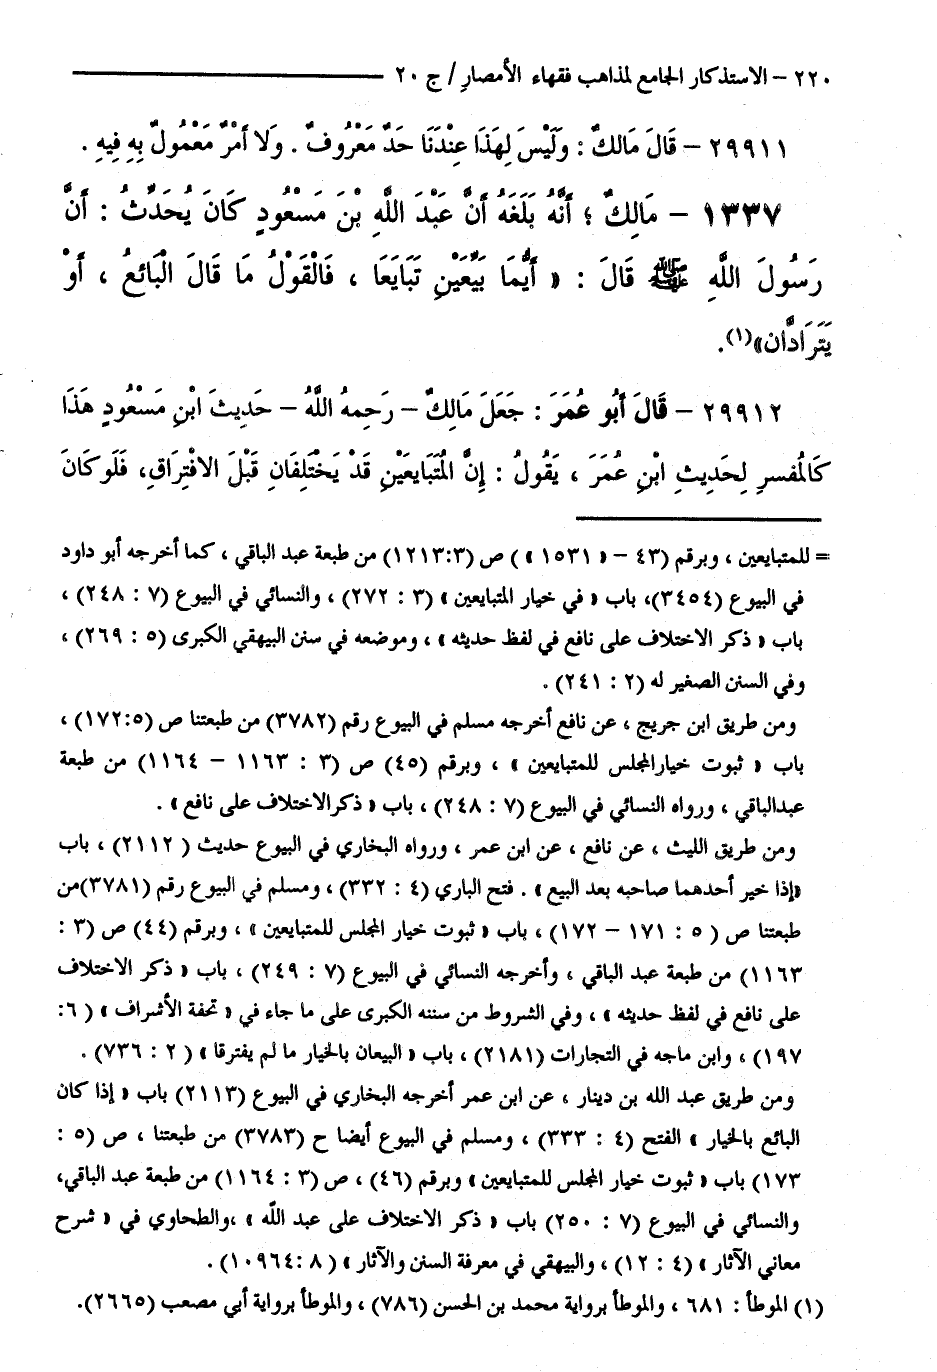 ٢٢٠ – الاستذكار الجامع لمذاهب فقهاء الأمصار / ج ٢٠
٢٩٩١١ – قَالَ مَالكٌ : وَلَيْسَ لِهَذَا عِنْدَنَا حَدٌ مَعْرُوفٌ . وَلَا أَمْرٌ مَعْمُولٌ بِهِ فِيهِ .
١٣٣٧ – مَالِكٌ ؛ أَنَّهُ بَلَغَهُ أَنَّ عَبْدَ اللَّهِ بْنَ مَسْعُودٍ كَانَ يُحَدِّثُ : أَنَّ
رَسُولَ اللَّهِ ﷺ قَالَ : « أَيُّمَا بَيِّعَيْنِ تَبَايَعَا ، فَالْقَوْلُ مَا قَالَ الْبَائِعُ ، أَوْ
يَتَرَادَّانِ»(١).
٢٩٩١٢ – قَالَ أَبُو عُمَرَ : جَعَلَ مَالِكٌ – رَحِمهُ اللَّهُ – حَدِيثَ ابْنِ مَسْعُودٍ هَذَا
كَالمُفسرِ لِحَدِيثِ ابْنِ عُمَرَ ، يَقُولُ : إِنَّ المُتَبَايعَيْنِ قَدْ يَخْتَلِفَانِ قَبْلَ الافْتِرَاقِ، فَلَو كَانَ
= للمتبايعين ، وبرقم (٤٣ – « ١٥٣١ » ) ص (١٢١٣:٣) من طبعة عبد الباقي ، كما أخرجه أبو داود
في البيوع (٣٤٥٤)، باب « في خيار المتبايعين » (٣ : ٢٧٢) ، والنسائي في البيوع (٧ : ٢٤٨) ،
باب « ذكر الاختلاف على نافع في لفظ حديثه » ، وموضعه في سنن البيهقي الكبرى (٥ : ٢٦٩) ،
وفي السنن الصغير له (٢ : ٢٤١) .
ومن طريق ابن جريج ، عن نافع أخرجه مسلم في البيوع رقم (٣٧٨٢) من طبعتنا ص (١٧٢:٥) ،
باب « ثبوت خيارالمجلس للمتبايعين » ، وبرقم (٤٥) ص (٣ : ١١٦٣ – ١١٦٤) من طبعة
عبدالباقي ، ورواه النسائي في البيوع (٧ : ٢٤٨) ، باب « ذكرالاختلاف على نافع » .
ومن طريق الليث ، عن نافع ، عن ابن عمر ، ورواه البخاري في البيوع حديث ( ٢١١٢) ، باب
«إذا خير أحدهما صاحبه بعد البيع» . فتح الباري (٤ : ٣٣٢) ، ومسلم في البيوع رقم (٣٧٨١)من
طبعتنا ص ( ٥ : ١٧١ – ١٧٢) ، باب « ثبوت خيار المجلس للمتبايعين » ، وبرقم (٤٤) ص (٣ :
١١٦٣) من طبعة عبد الباقي ، وأخرجه النسائي في البيوع (٧ : ٢٤٩) ، باب « ذكر الاختلاف
على نافع في لفظ حديثه » ، وفي الشروط من سننه الكبرى على ما جاء في « تحفة الأشراف » ( ٦:
١٩٧) ، وابن ماجه في التجارات (٢١٨١) ، باب « البيعان بالخيار ما لم يفترقا » ( ٢ : ٧٣٦) .
ومن طريق عبد الله بن دينار ، عن ابن عمر أخرجه البخاري في البيوع (٢١١٣) باب « إذا كان
البائع بالخيار » الفتح (٤ : ٣٣٣) ، ومسلم في البيوع أيضا ح (٣٧٨٣) من طبعتنا ، ص (٥ :
١٧٣) باب « ثبوت خيار المجلس للمتبايعين» وبرقم (٤٦) ، ص (٣ : ١١٦٤) من طبعة عبد الباقي،
والنسائي في البيوع (٧ : ٢٥٠) باب « ذكر الاختلاف على عبد اللّه » ،والطحاوي في « شرح
معاني الآثار » (٤ : ١٢) ، والبيهقي في معرفة السنن والآثار » ( ٨ :١٠٩٦٤) .
(١) الموطأ : ٦٨١ ، والموطأ برواية محمد بن الحسن (٧٨٦) ، والموطأ برواية أبي مصعب (٢٦٦٥).